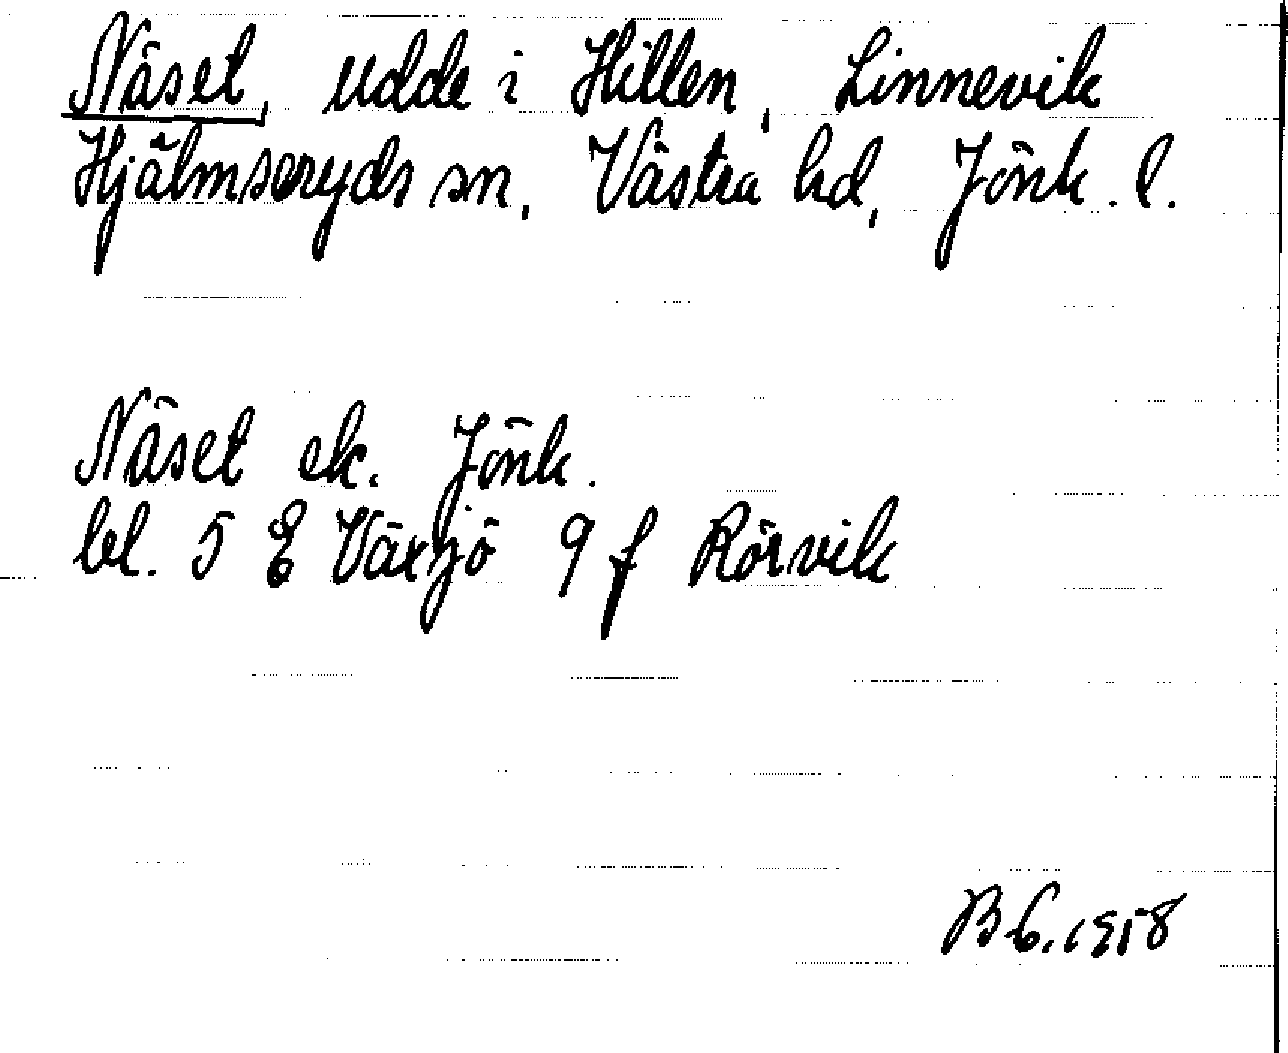 Näset, udde i Hillen, Linnevik
Hjälmseryds sn, Västra hd, Jönk. l.
Näset ek. Jönk.
bl. 5 E Växjö 9 f Rörvik
1958